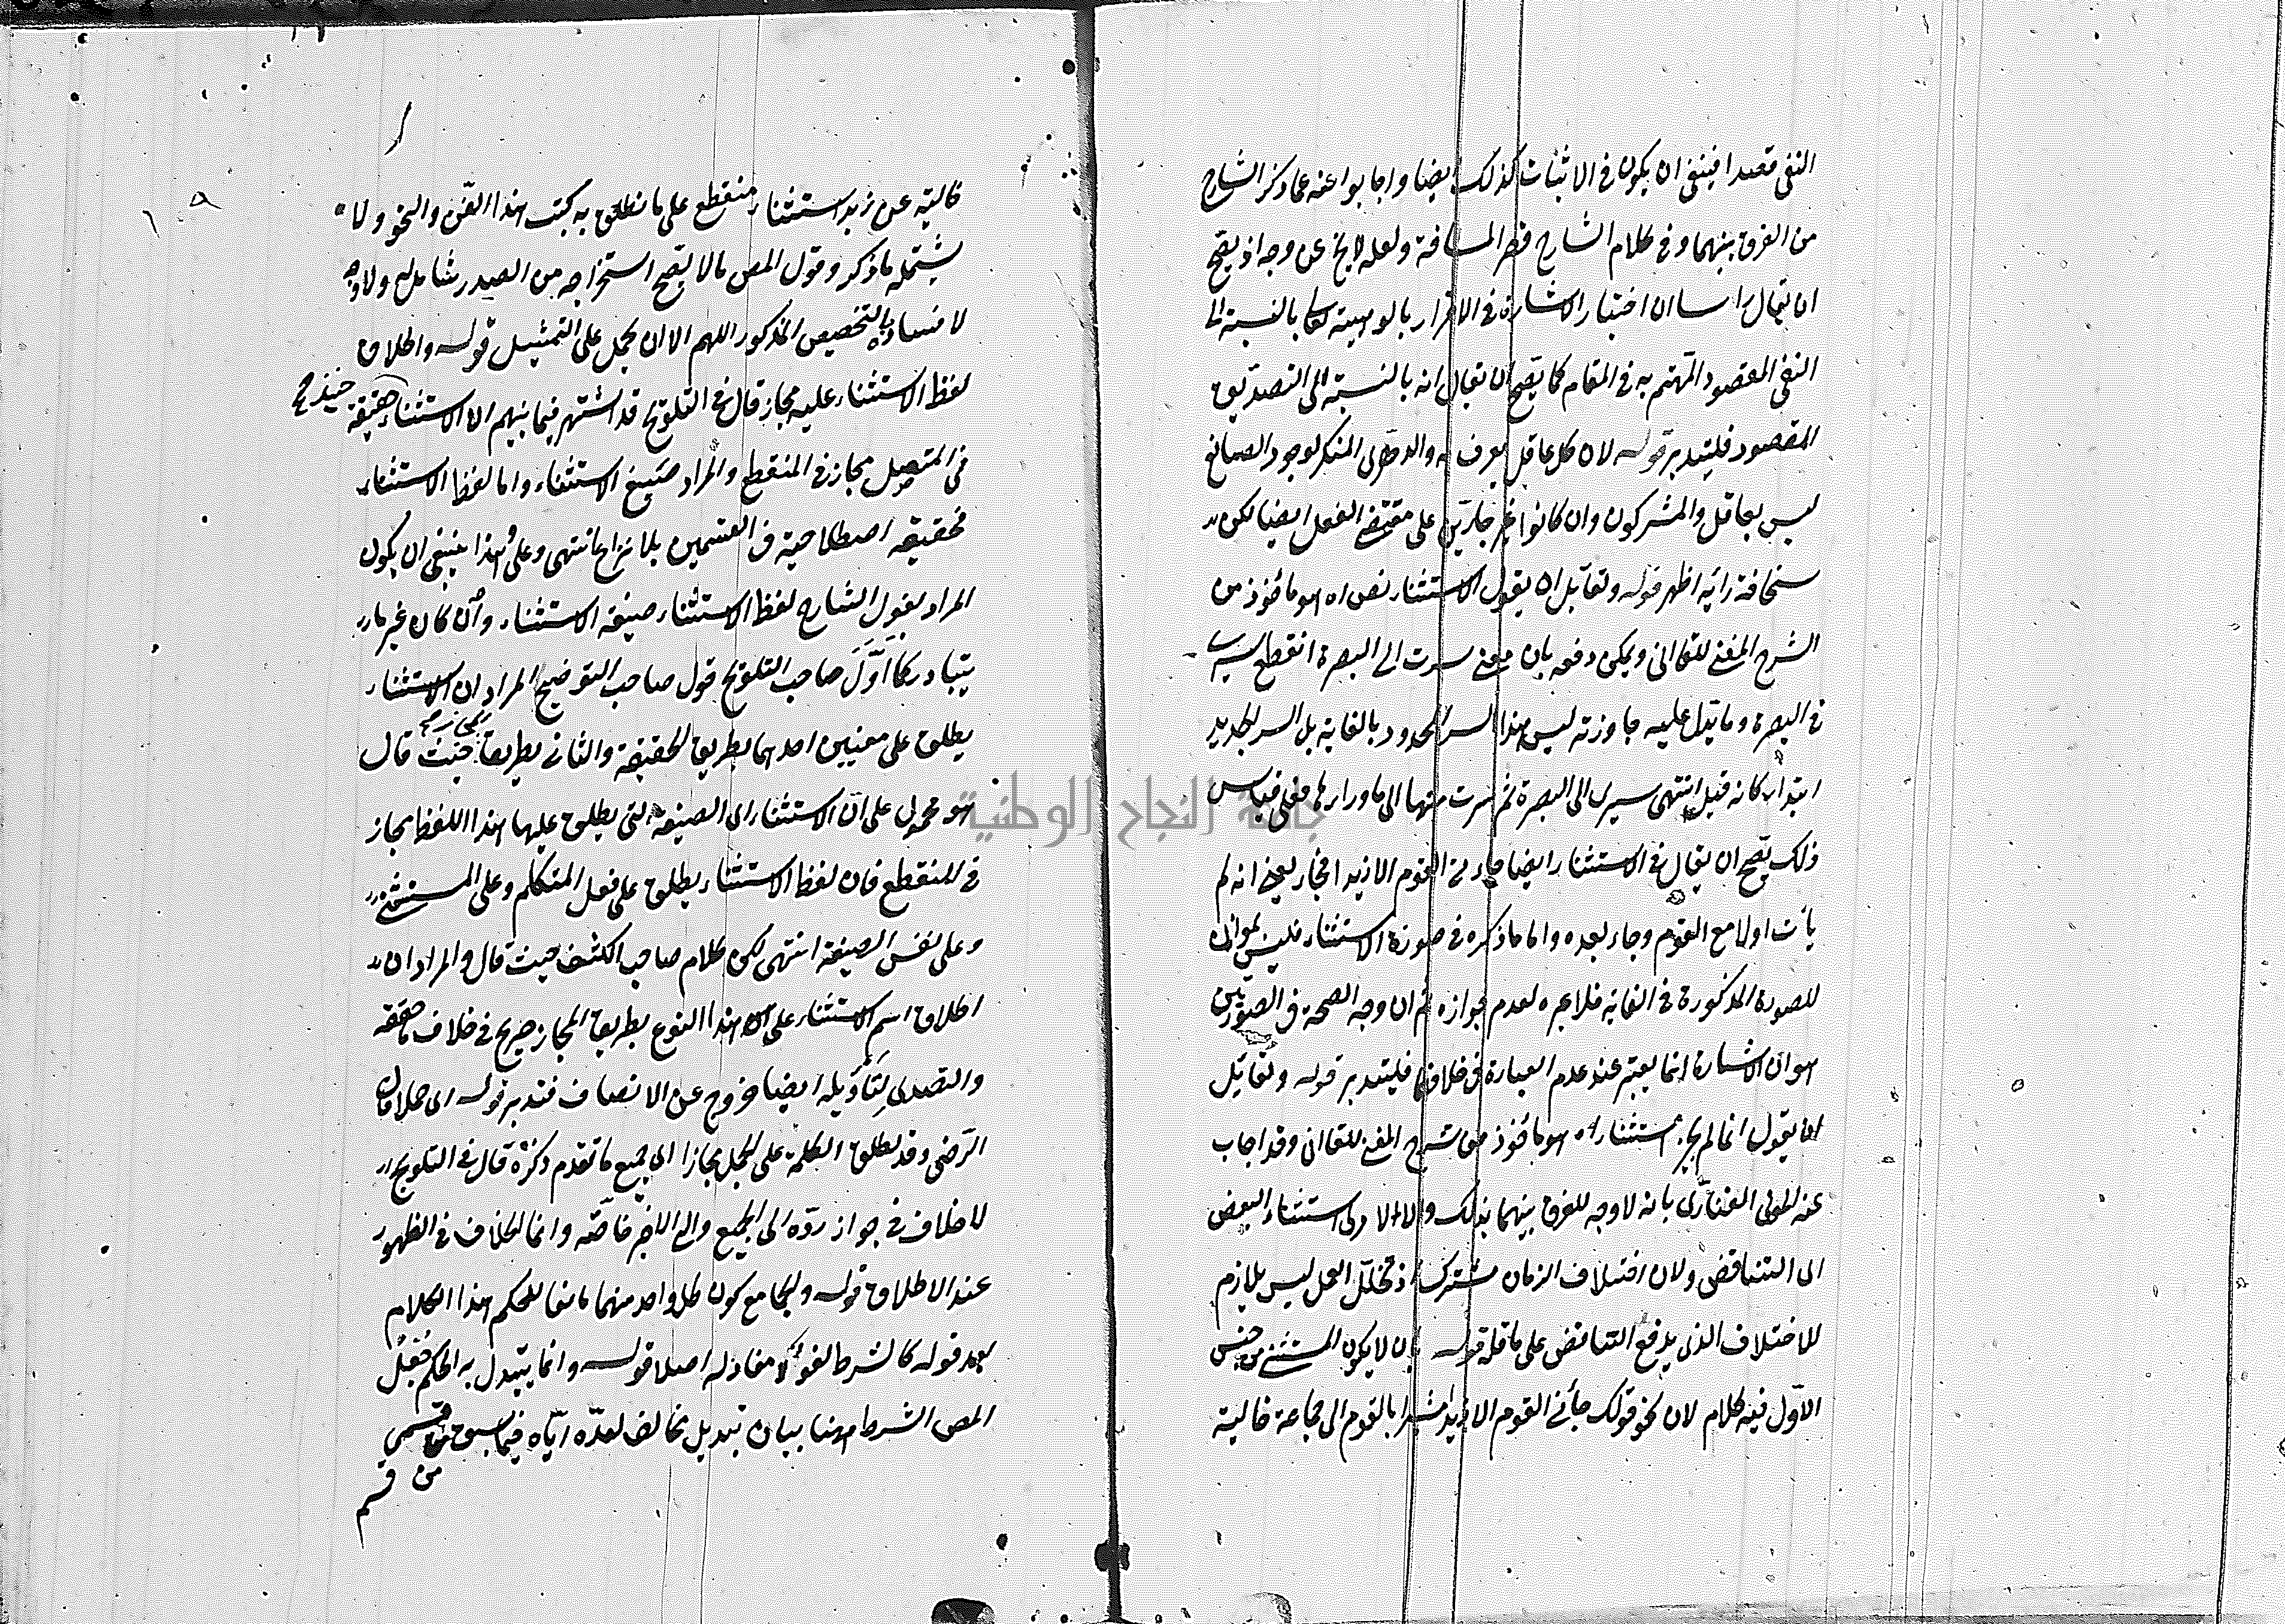 النفى قصدا فينبغى ان يكون فى الاثبات كذلك ايضا واجابوا عنه بما ذكر الشارح
من الفرق بينهما وفى كلام الشارح المسافة ولعله لا يخ عن وجه اذ يصح
ان يقال ان اختيار الاشارة فى الاقرار بالوهيته تعالى بالنسبة الى
النفى المقصود المهتم به فى المقام كما يصح ان يقال انه بالنسبة الى التصديق
المقصود فليتدبر قوله لان كل عاقل يعرف به والدهرى المنكر لوجود الصانع
ليس بعاقل والمشركون وان كانوا غير جارين على مقتضى العقل ايضا لكن
سخافة رأيه اظهر قوله ولقائل ان يقول الاستثناء نص اه هو مأخوذ من
الشرح المغنى للقاانى ويمكن دفعه بان معنى سرت الى البصرة انقطع سيرى
فى البصرة وما يدل عليه جاوزته ليس هذا السير المحدود بالغاية بل السير الجديد
ابتداء كانه قيل انتهى سيرى الى البصرة ثم سرت منها الى ما وراءها فعلى قياس
ذلك يصح ان يقال فى الاستثناء ايضا جاءنى القوم الا زيدا فجاء يعنى انه لم
يأت اولا مع القوم وجاء بعده واما ما ذكره فى صورة الاستثناء فليس بموازن
للصورة المذكورة فى الغاية فلا عبرة لعدم جوازه ثم ان وجه الصحة فى الصورتين
هو ان الاشارة انما يعتبر عند عدم العبارة فى خلافها فليتدبر قوله ولقائل
ان يقول انما لم يجز استثناء اه هو مأخوذ من شرح المغنى للقاانى وقد اجاب
عنه المولى الفنارى بانه لا وجه للفرق بينهما بذلك والا لادى استثناء البعض
الى التناقض ولان اختلاف الزمان مشترك اذ تخلل العمل ليس بلازم
للاختلاف الذى يدفع التناقض على ما قوله بان لا يكون المستثنى من جنس
الاول فيه كلام لان نحو قولك جائنى القوم الا زيدا مشيرا بالقوم الى جماعة خالية
خالية عن زيد استثناء منقطع على ما نطق به كتب هذا الفن والنحو ولا
يشتمله ما ذكر وقول المص ما لا يصح استخراجه من الصدر شامل له ولا وجه
لافساده بالتخصيص المذكور اللهم الا ان يحمل على التمثيل قوله واطلاق
لفظ الاستثناء عليه مجاز قال فى التلويح قد اشتهر فيما بينهم ان الاستثناء حقيقة
فى المتصل مجاز فى المنقطع والمراد صيغ الاستثناء واما لفظ الاستثناء
فحقيقة اصطلاحية فى القسمين بلا نزاع انتهى وعلى هذا ينبغى ان يكون
المراد بقول الشارح لفظ الاستثناء صيغة الاستثناء وان كان غير
يتبادر كما اول صاحب التلويح قول صاحب التوضيح المراد ان الاستثناء
يطلق على معنيين احدهما بطريق الحقيقة والثانى بطريق حيث قال
هو محمول على ان الاستثناء اى الصيغة التى يطلق عليها هذا اللفظ مجاز
فى المنقطع فان لفظ الاستثناء يطلق على فعل المتكلم وعلى المستثنى
وعلى نفس الصيغة انتهى لكن كلام صاحب الكشف حيث قال والمراد ان
اطلاق اسم الاستثناء على هذا النوع بطريق المجاز صريح فى خلاف ما حققه
والتصدى لتأويله ايضا خروج عن الانصاف فتدبر قوله اى جملا قال
الرضى وقد يطلق الكلمة على الجمل مجازا الى جميع ما تقدم ذكره قال فى التلويح
لا خلاف فى جواز رده الى الجميع والى الاخير خاصة وانما الخلاف فى الظهور
عند الاطلاق قوله والجامع كون كل واحد منهما مانعا للحكم هذا الكلام
بعد قوله كالشرط لغو لا مفاد له اصلا قوله وانما يتبدل به الحكم فجعل
المص الشرط ههنا بيان تبديل مخالف لعده اياه فيما سبق من قسمى
من قسم
جامعة النجاح الوطنية